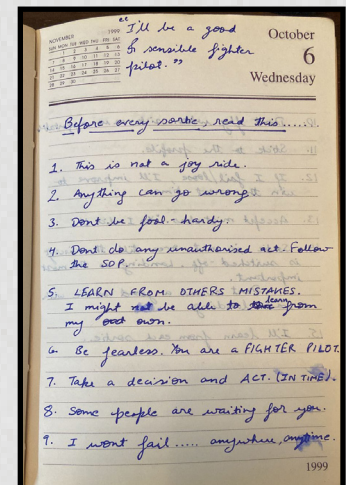 "I'll be a good
& sensible fighter
pilot."
NOVEMBER 1999
SUN MON TUE WED THU FRI SAT
1 2 3 4 5 6
7 8 9 10 11 12 13
14 15 16 17 18 19 20
21 22 23 24 25 26 27
28 29 30
October
6
Wednesday
Before every sortie, read this.....
1. This is not a joy ride.
2. Anything can go wrong.
3. Dont be fool-hardy.
4. Dont do any unauthorised act. Follow
the SOP.
5. LEARN FROM OTHERS MISTAKES.
I might not be able to learn from
my own.
6. Be fearless. You are a FIGHTER PILOT.
7. Take a decision and ACT. (IN TIME).
8. Some people are waiting for you.
9. I wont fail ..... anywhere, anytime.
1999